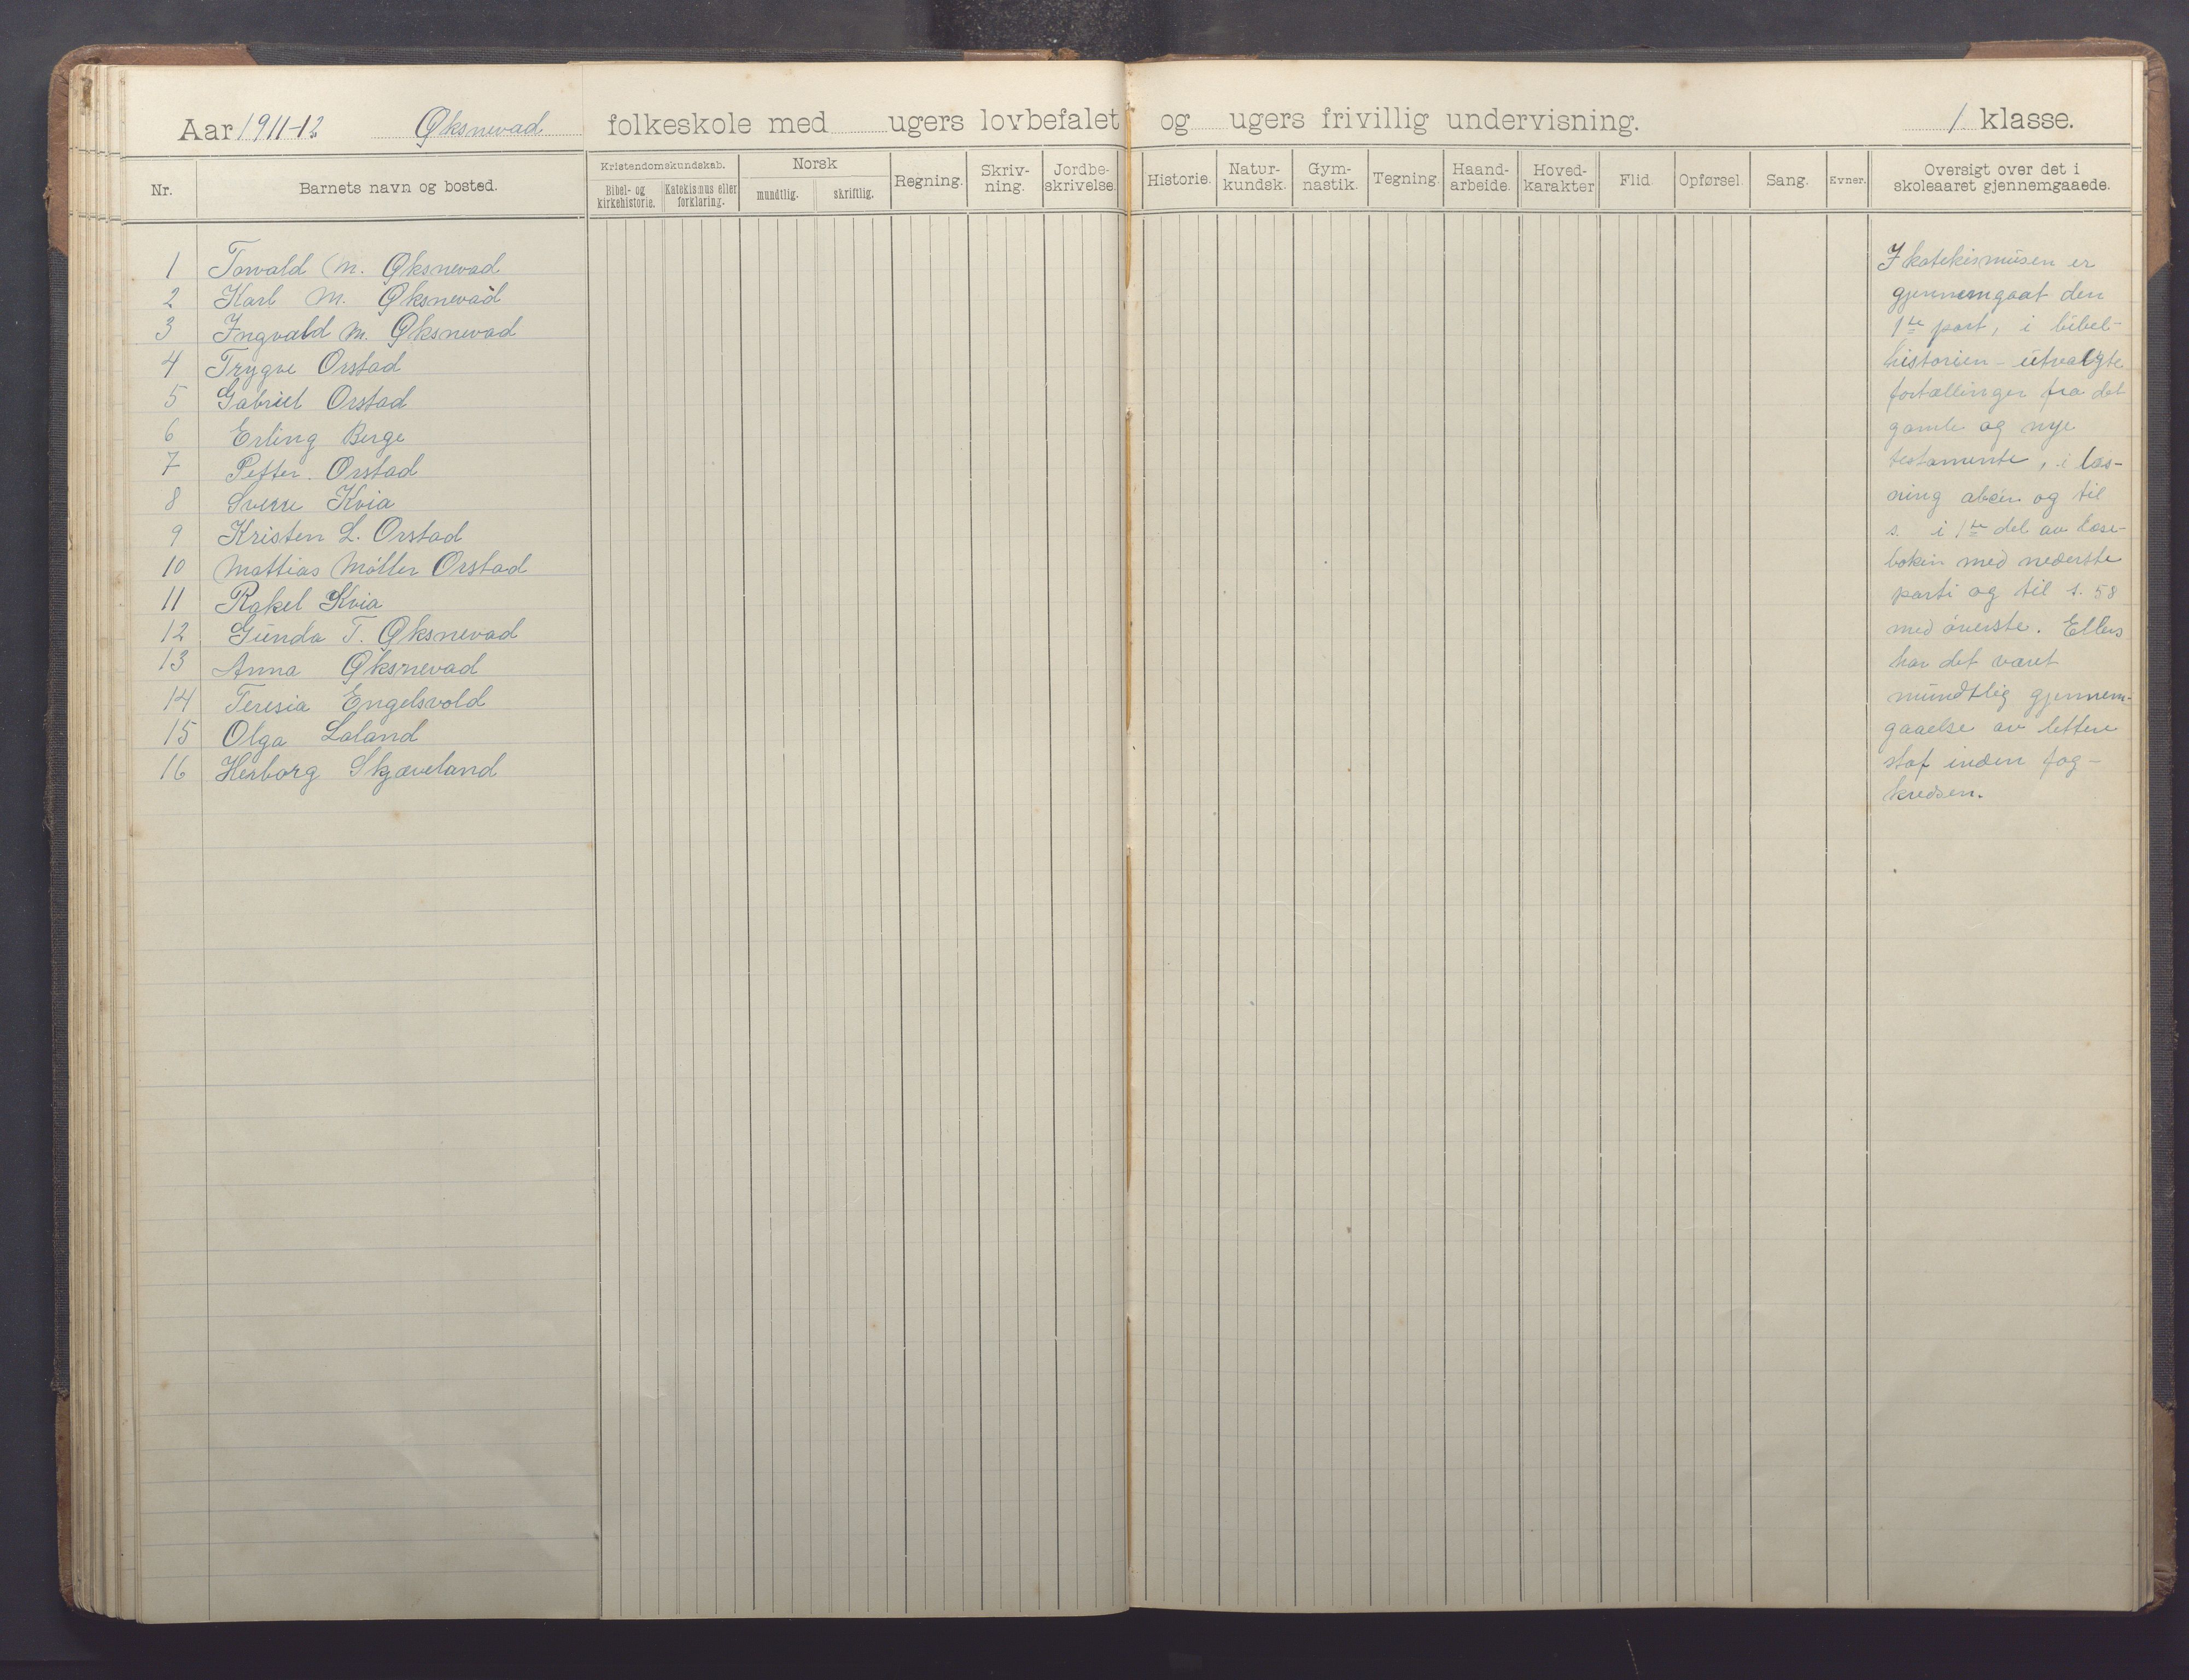 Aar 1911-12 Øksnevad folkeskole med ugers lovbefalet og ugers frivillig undervisning. 1 klasse.
Nr. Barnets navn og bosted. Kristendomskundskab. Bibel- og kirkehistorie. Katekismus eller forklaring. Norsk mundtlig. skriftlig. Regning. Skriv-ning. Jordbe-skrivelse. Historie. Natur-kundsk. Gym-nastik. Tegning. Haand-arbeide. Hoved-karakter Flid. Opførsel. Sang. Evner. Oversigt over det i skoleaaret gjennemgaaede.
1 Torvald M. Øksnevad
2 Karl M. Øksnevad
3 Ingvald M. Øksnevad
4 Trygve Orstad
5 Gabriel Orstad
6 Erling Berge
7 Petter Orstad
8 Sverre Kvia
9 Kristen L. Orstad
10 Mattias Møller Orstad
11 Rakel Kvia
12 Gunda T. Øksnevad
13 Anna Øksnevad
14 Teresia Engelsvold
15 Olga Laland
16 Herborg Skjæveland
I katekismusen er
gjennemgaat den
1ste part, i bibel-
historien - utvalgte
fortællinger fra det
gamle og nye
testamente, i læs-
ning abc'en og til
s. i 1ste del av læse-
boken med nederste
parti og til s. 58
med øverste. Ellers
har det været
mundtlig gjennem-
gaaelse av lettere
stof inden fag-
kredsen.